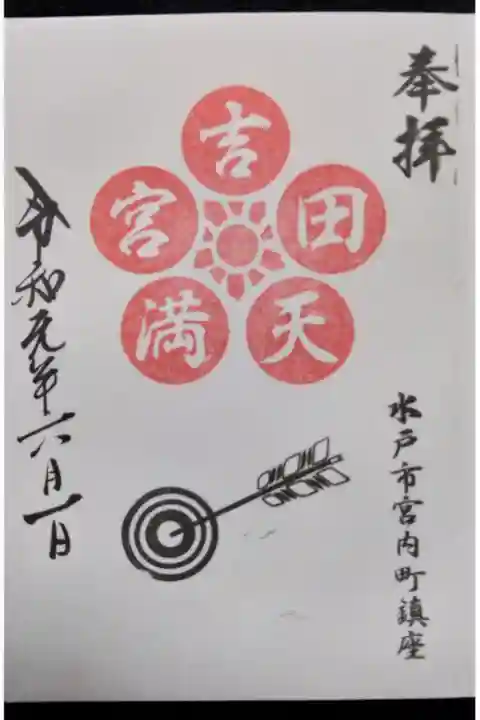 奉拝
水戸市宮内町鎮座
吉田天満宮
令和元年六月一日